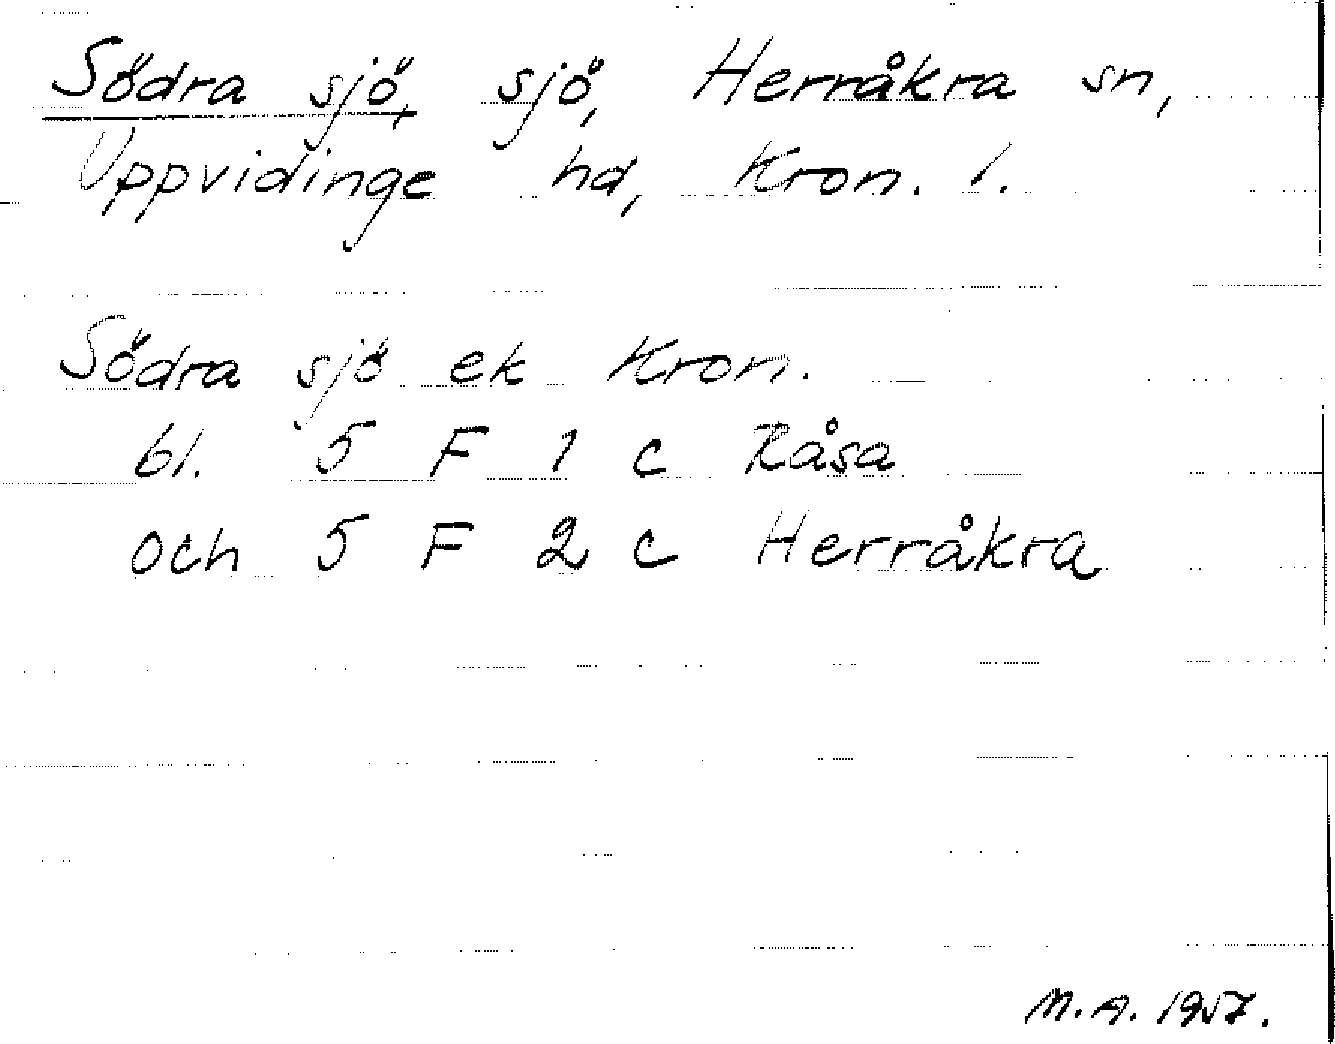 Södra sjö, sjö, Herråkra sn,
Uppvidinge hd, Kron. l.
Södra sjö ek Kron.
bl. 5 F 1 c Råsa
och 5 F 2 c Herråkra
M.A. 1957.